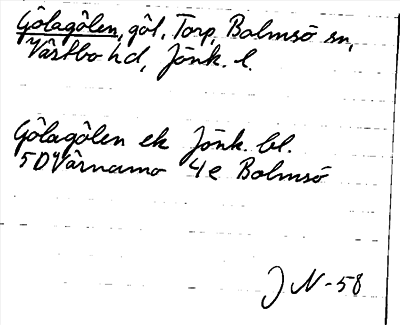 Gölagölen, göl, Torp, Bolmsö sn,
Västbo hd, Jönk. l.
Gölagölen ek Jönk. bl.
5D Värnamo 4e Bolmsö
J N-58